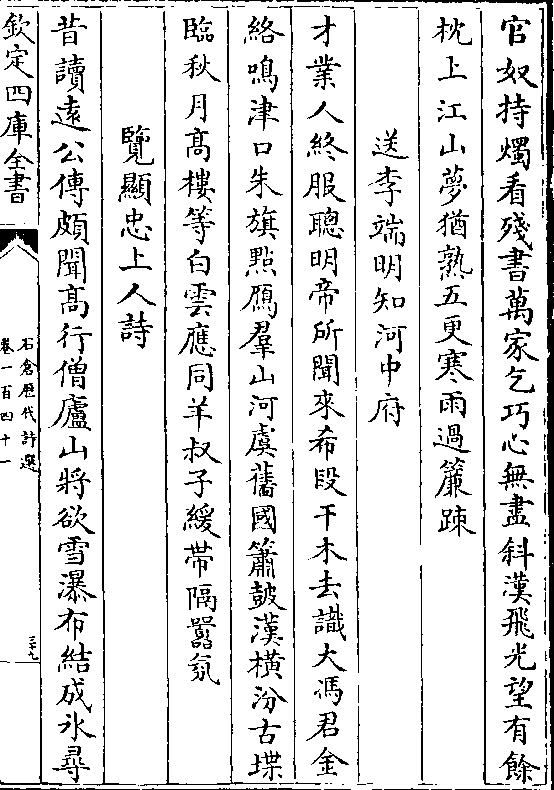 官奴持燭看殘書萬家乞巧心無盡斜漢飛光望有餘
枕上江山夢猶熟五更寒雨過簾疎
送李端明知河中府
才業人終服聰明帝所聞來希段干木去識大馮君金
絡鳴津口朱旗點鴈羣山河虞舊國簫鼓漢橫汾古堞
臨秋月高樓等白雲應同羊叔子緩帶隔囂氛
覽顯忠上人詩
昔讀遠公傳頗聞高行僧廬山將欲雪瀑布結成氷尋
欽定四庫全書
石倉歴代詩選
卷一百四十一
三十九